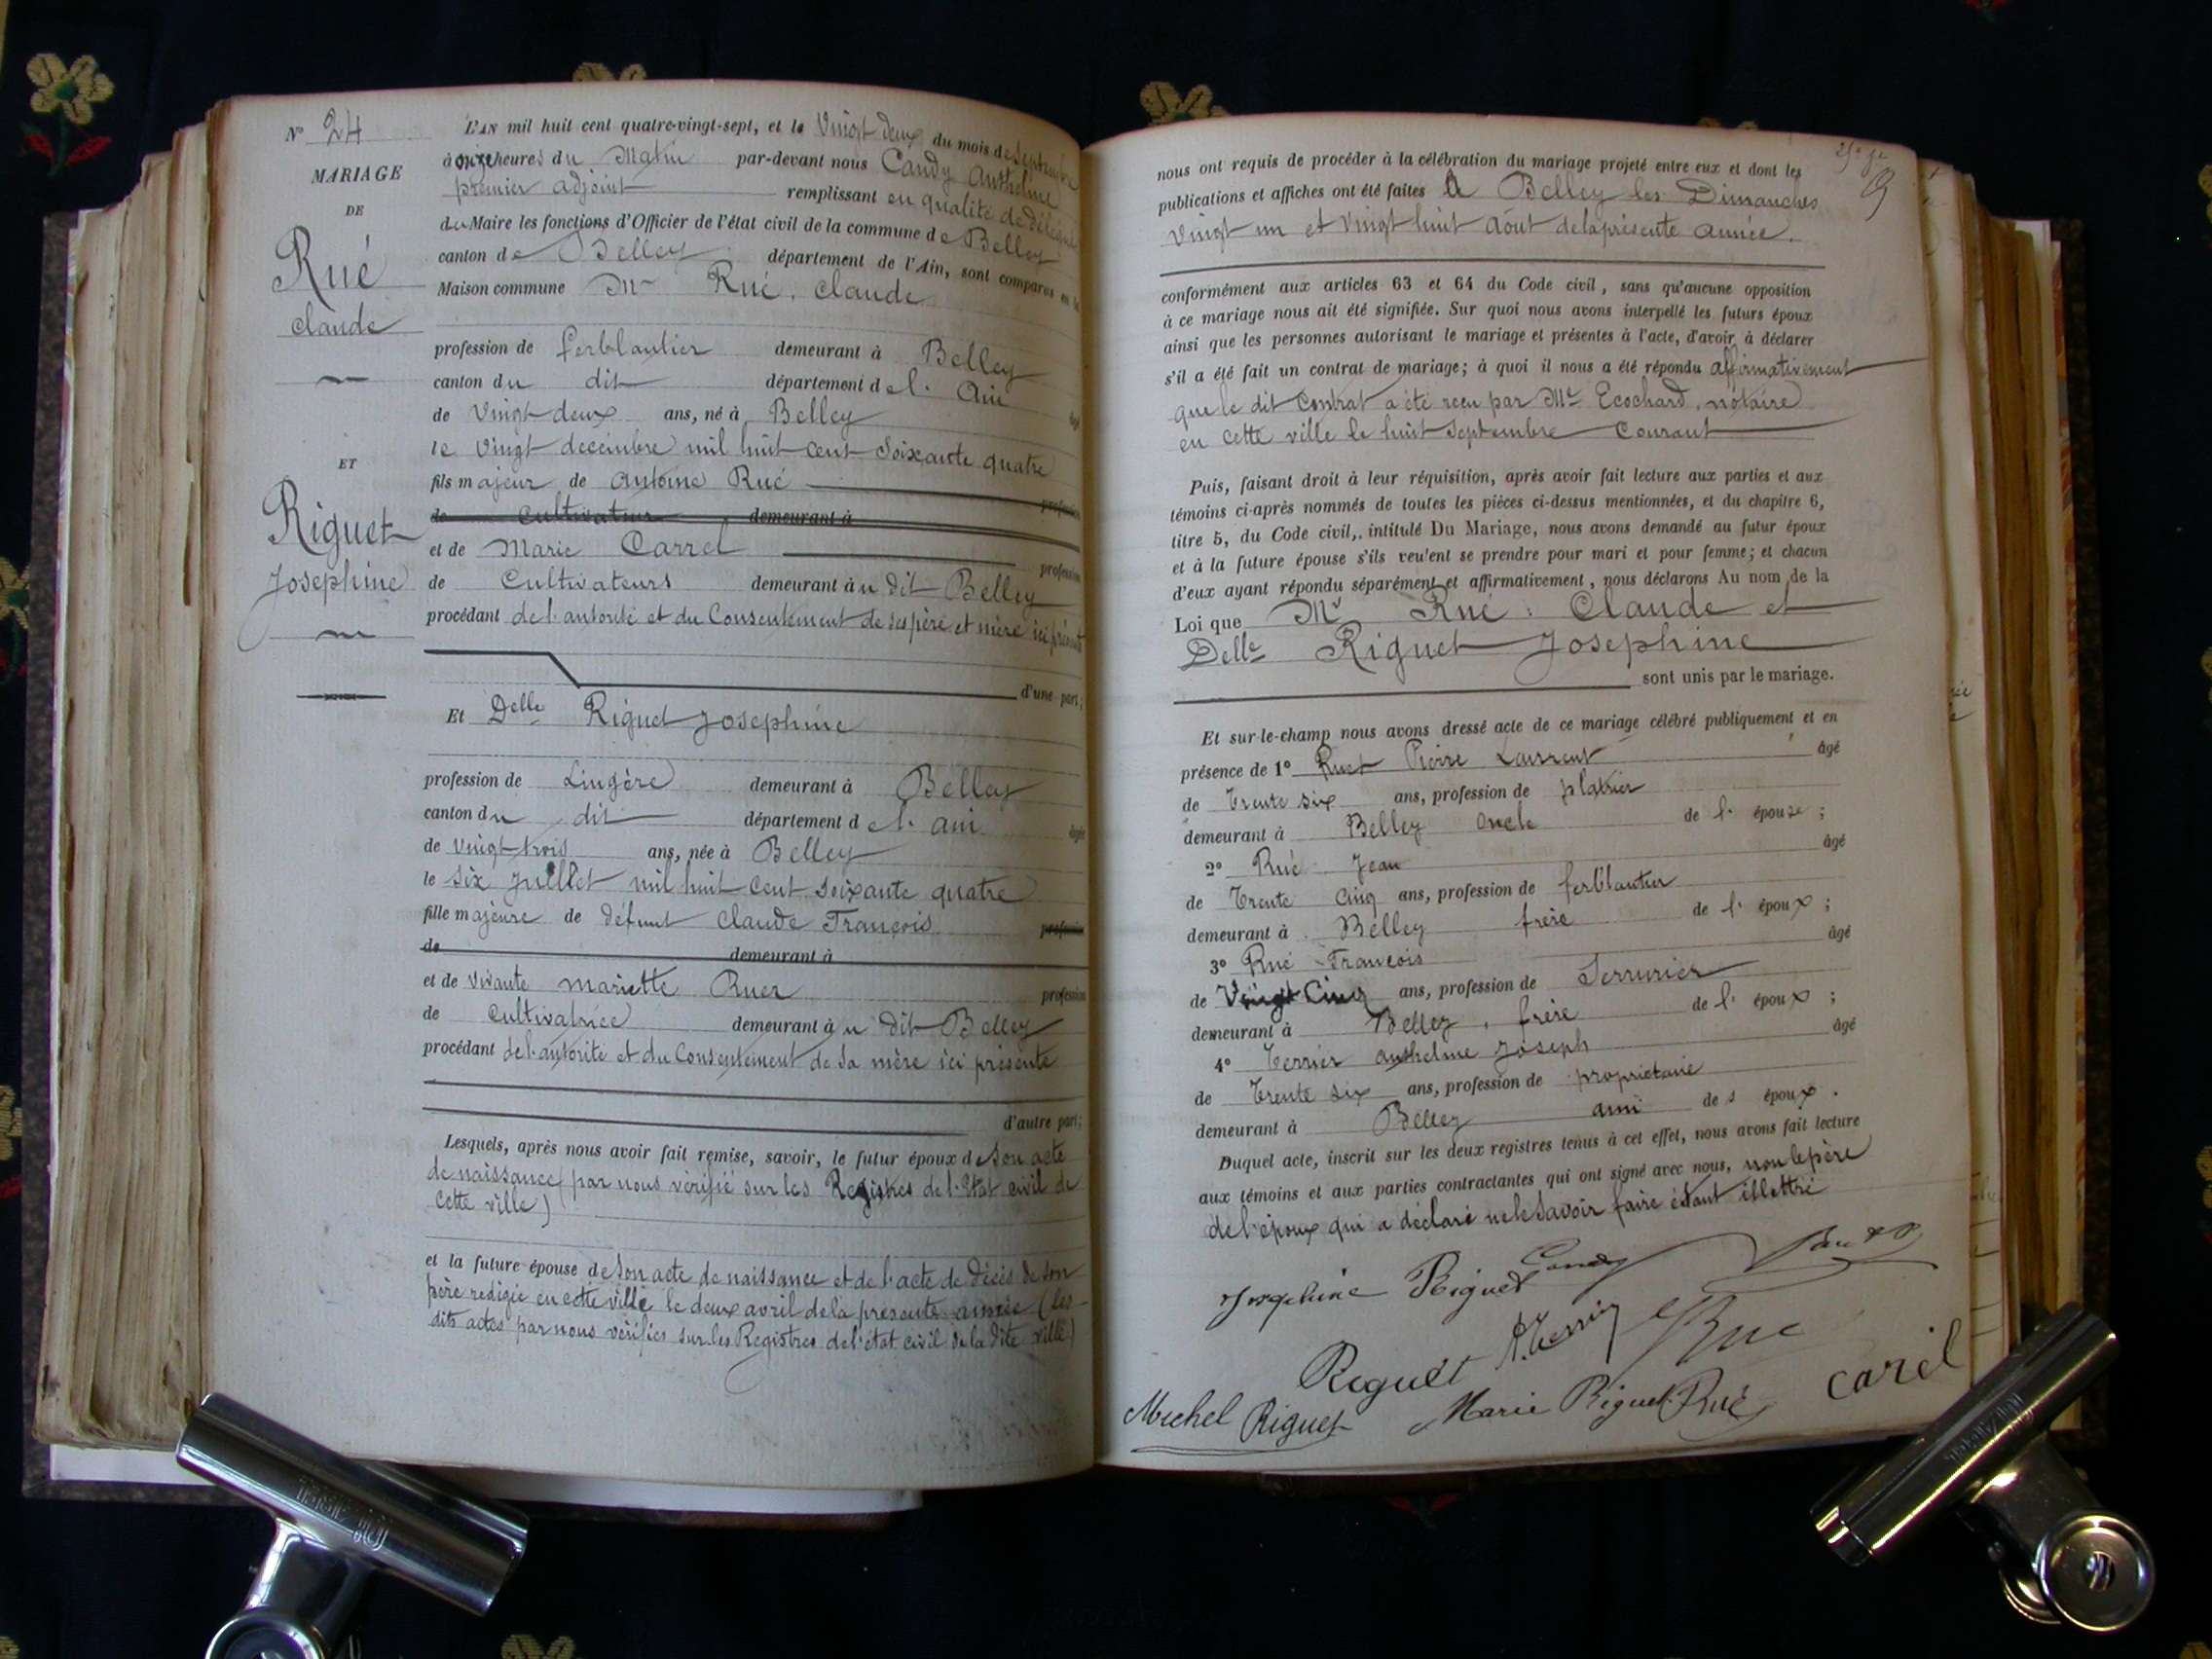 N° 24
MARIAGE
DE
Rué
Claude
ET
Riguet
Josephine
L'AN mil huit cent quatre-vingt-sept, et le Vingt deux du mois de Septembre
à onze heures du Matin par-devant nous Candy Anthelme
premier adjoint remplissant en qualité de délégué
du Maire les fonctions d'Officier de l'état civil de la commune de Belley
canton de Belley département de l'Ain, sont comparus en la
Maison commune Mr Rué, Claude
profession de ferblantier demeurant à Belley
canton du dit département de l'Ain
de Vingt deux ans, né à Belley âgé
le Vingt decembre mil huit cent Soixante quatre
fils majeur de Antoine Rué profession
de Cultivateur demeurant à
et de Marie Carrel profession
de Cultivateurs demeurant à u dit Belley
procédant de l'autorité et du Consentement de ses père et mère ici présents
d'une part;
Et Delle Riguet Josephine
profession de Lingère demeurant à Belley
canton du dit département de l'Ain âgée
de Vingt trois ans, née à Belley
le Six Juillet mil huit Cent Soixante quatre
fille majeure de défunt Claude François profession
de demeurant à
et de vivante Mariette Ruer profession
de Cultivatrice demeurant à u dit Belley
procédant de l'autorité et du Consentement de Sa mère ici présente
d'autre part;
Lesquels, après nous avoir fait remise, savoir, le futur époux de Son acte
de naissance (par nous vérifié sur les Registres de l'Etat civil de
cette ville)
et la future épouse de Son acte de naissance et de l'acte de décès de Son
père redigié en cette ville le deux avril de la présente année (les
dits actes par nous vérifiés sur les Registres de l'état civil de la dite ville)
19
nous ont requis de procéder à la célébration du mariage projeté entre eux et dont les
publications et affiches ont été faites à Belley les Dimanches
Vingt un et Vingt huit Août de la présente année.
conformément aux articles 63 et 64 du Code civil, sans qu'aucune opposition
à ce mariage nous ait été signifiée. Sur quoi nous avons interpellé les futurs époux
ainsi que les personnes autorisant le mariage et présentes à l'acte, d'avoir à déclarer
s'il a été fait un contrat de mariage; à quoi il nous a été répondu affirmativement
que le dit Contrat a été reçu par Me Ecochard, notaire
en cette ville le huit Septembre Courant
Puis, faisant droit à leur réquisition, après avoir fait lecture aux parties et aux
témoins ci-après nommés de toutes les pièces ci-dessus mentionnées, et du chapitre 6,
titre 5, du Code civil, intitulé Du Mariage, nous avons demandé au futur époux
et à la future épouse s'ils veulent se prendre pour mari et pour femme; et chacun
d'eux ayant répondu séparément et affirmativement, nous déclarons Au nom de la
Loi que Mr Rué Claude et
Delle Riguet Josephine
sont unis par le mariage.
Et sur-le-champ nous avons dressé acte de ce mariage célébré publiquement et en
présence de 1° Ruet Pierre Laurent âgé
de Trente six ans, profession de platrier
demeurant à Belley oncle de l'épouse;
2° Rué Jean âgé
de Trente Cinq ans, profession de ferblantier
demeurant à Belley frère de l'époux;
3° Rué François âgé
de Vingt Cinq ans, profession de Serrurier
demeurant à Belley, frère de l'époux;
4° Terrier Anthelme Joseph âgé
de Trente six ans, profession de propriétaire
demeurant à Belley ami des époux.
Duquel acte, inscrit sur les deux registres tenus à cet effet, nous avons fait lecture
aux témoins et aux parties contractantes qui ont signé avec nous, non le père
de l'époux qui a déclaré ne le Savoir faire étant illettré
Josephine Riguet Candy
Riguet Rué
Michel Riguet Marie Riguet Rué Carel